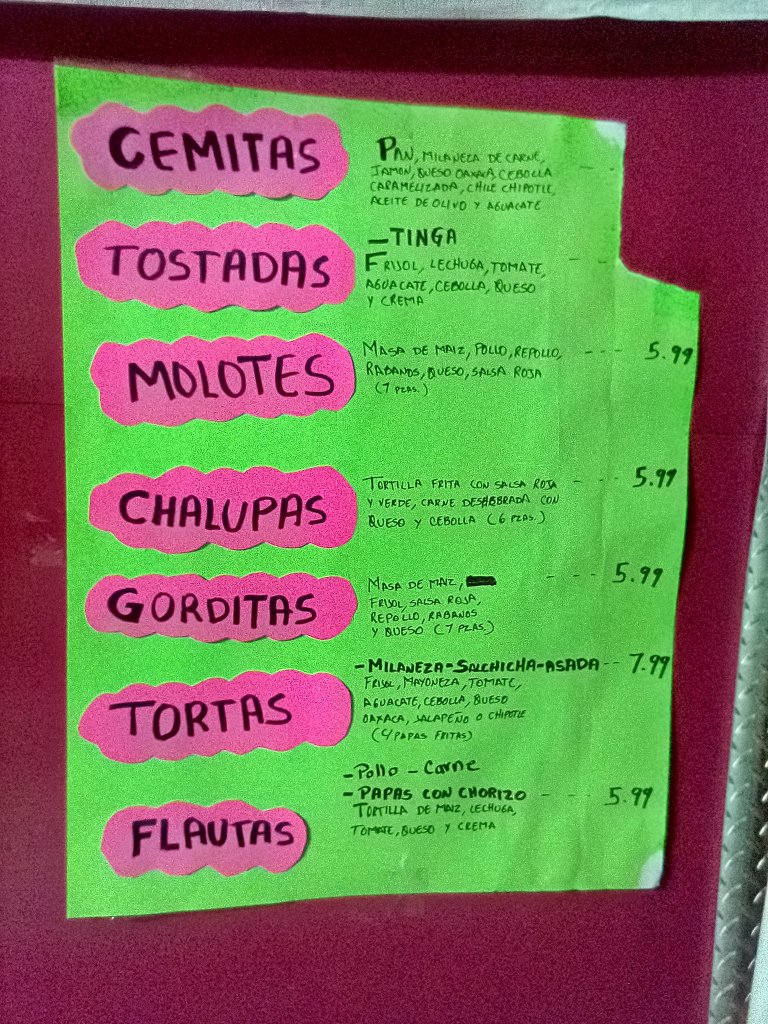 CEMITAS
PAN, MILANEZA DE CARNE,
JAMON, QUESO OAXACA, CEBOLLA
CARAMELIZADA, CHILE CHIPOTLE,
ACEITE DE OLIVO Y AGUACATE
TOSTADAS
- TINGA
FRIJOL, LECHUGA, TOMATE,
AGUACATE, CEBOLLA, QUESO
Y CREMA
MOLOTES
MASA DE MAIZ, POLLO, REPOLLO, --- 5.99
RABANOS, QUESO, SALSA ROJA
(7 PZAS.)
CHALUPAS
TORTILLA FRITA CON SALSA ROJA --- 5.99
Y VERDE, CARNE DESHEBRADA CON
QUESO Y CEBOLLA (6 PZAS.)
GORDITAS
MASA DE MAIZ, --- 5.99
FRIJOL, SALSA ROJA,
REPOLLO, RABANOS
Y QUESO (7 PZAS.)
TORTAS
- MILANEZA - SALCHICHA - ASADA -- 7.99
FRIJOL, MAYONEZA, TOMATE,
AGUACATE, CEBOLLA, QUESO
OAXACA, JALAPEÑO O CHIPOTLE
(Y PAPAS FRITAS)
FLAUTAS
- Pollo - Carne
- PAPAS CON CHORIZO --- 5.99
TORTILLA DE MAIZ, LECHUGA,
TOMATE, QUESO Y CREMA